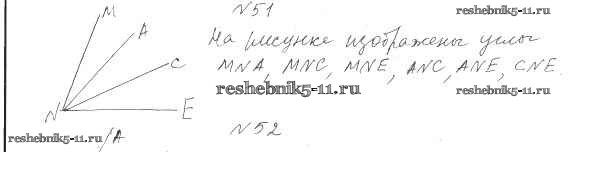 N51
reshebnik5-11.ru
M
A
На рисунке изображены углы
C
MNA, MNC, MNE, ANC, ANE, CNE.
reshebnik5-11.ru
reshebnik5-11.ru
N
E
reshebnik5-11.ru
/A
N52
reshebnik5-11.ru